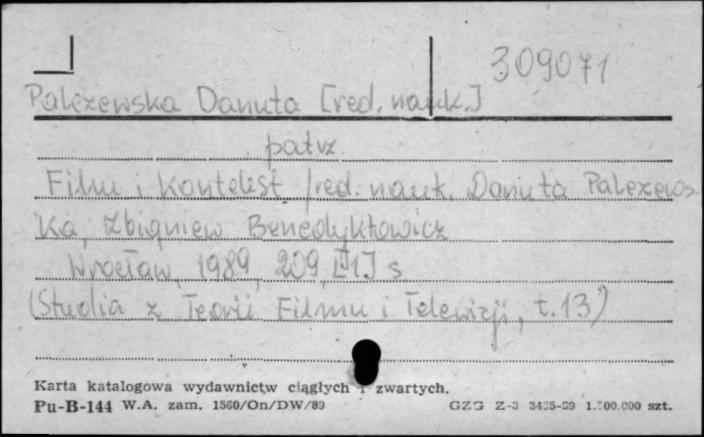 309071
Palczewska Danuta [red. nauk.]
patrz
Film i kontekst /red. nauk. Danuta Palczews
ka, Zbigniew Benedyktowicz
Wrocław, 1989, 209, [1] s
(Studia z Teorii Filmu i Telewizji, t. 13)
Karta katalogowa wydawnictw ciągłych i zwartych.
Pu-B-144 W.A. zam. 1560/On/DW/89 GZG Z-3 1.500.000 szt.